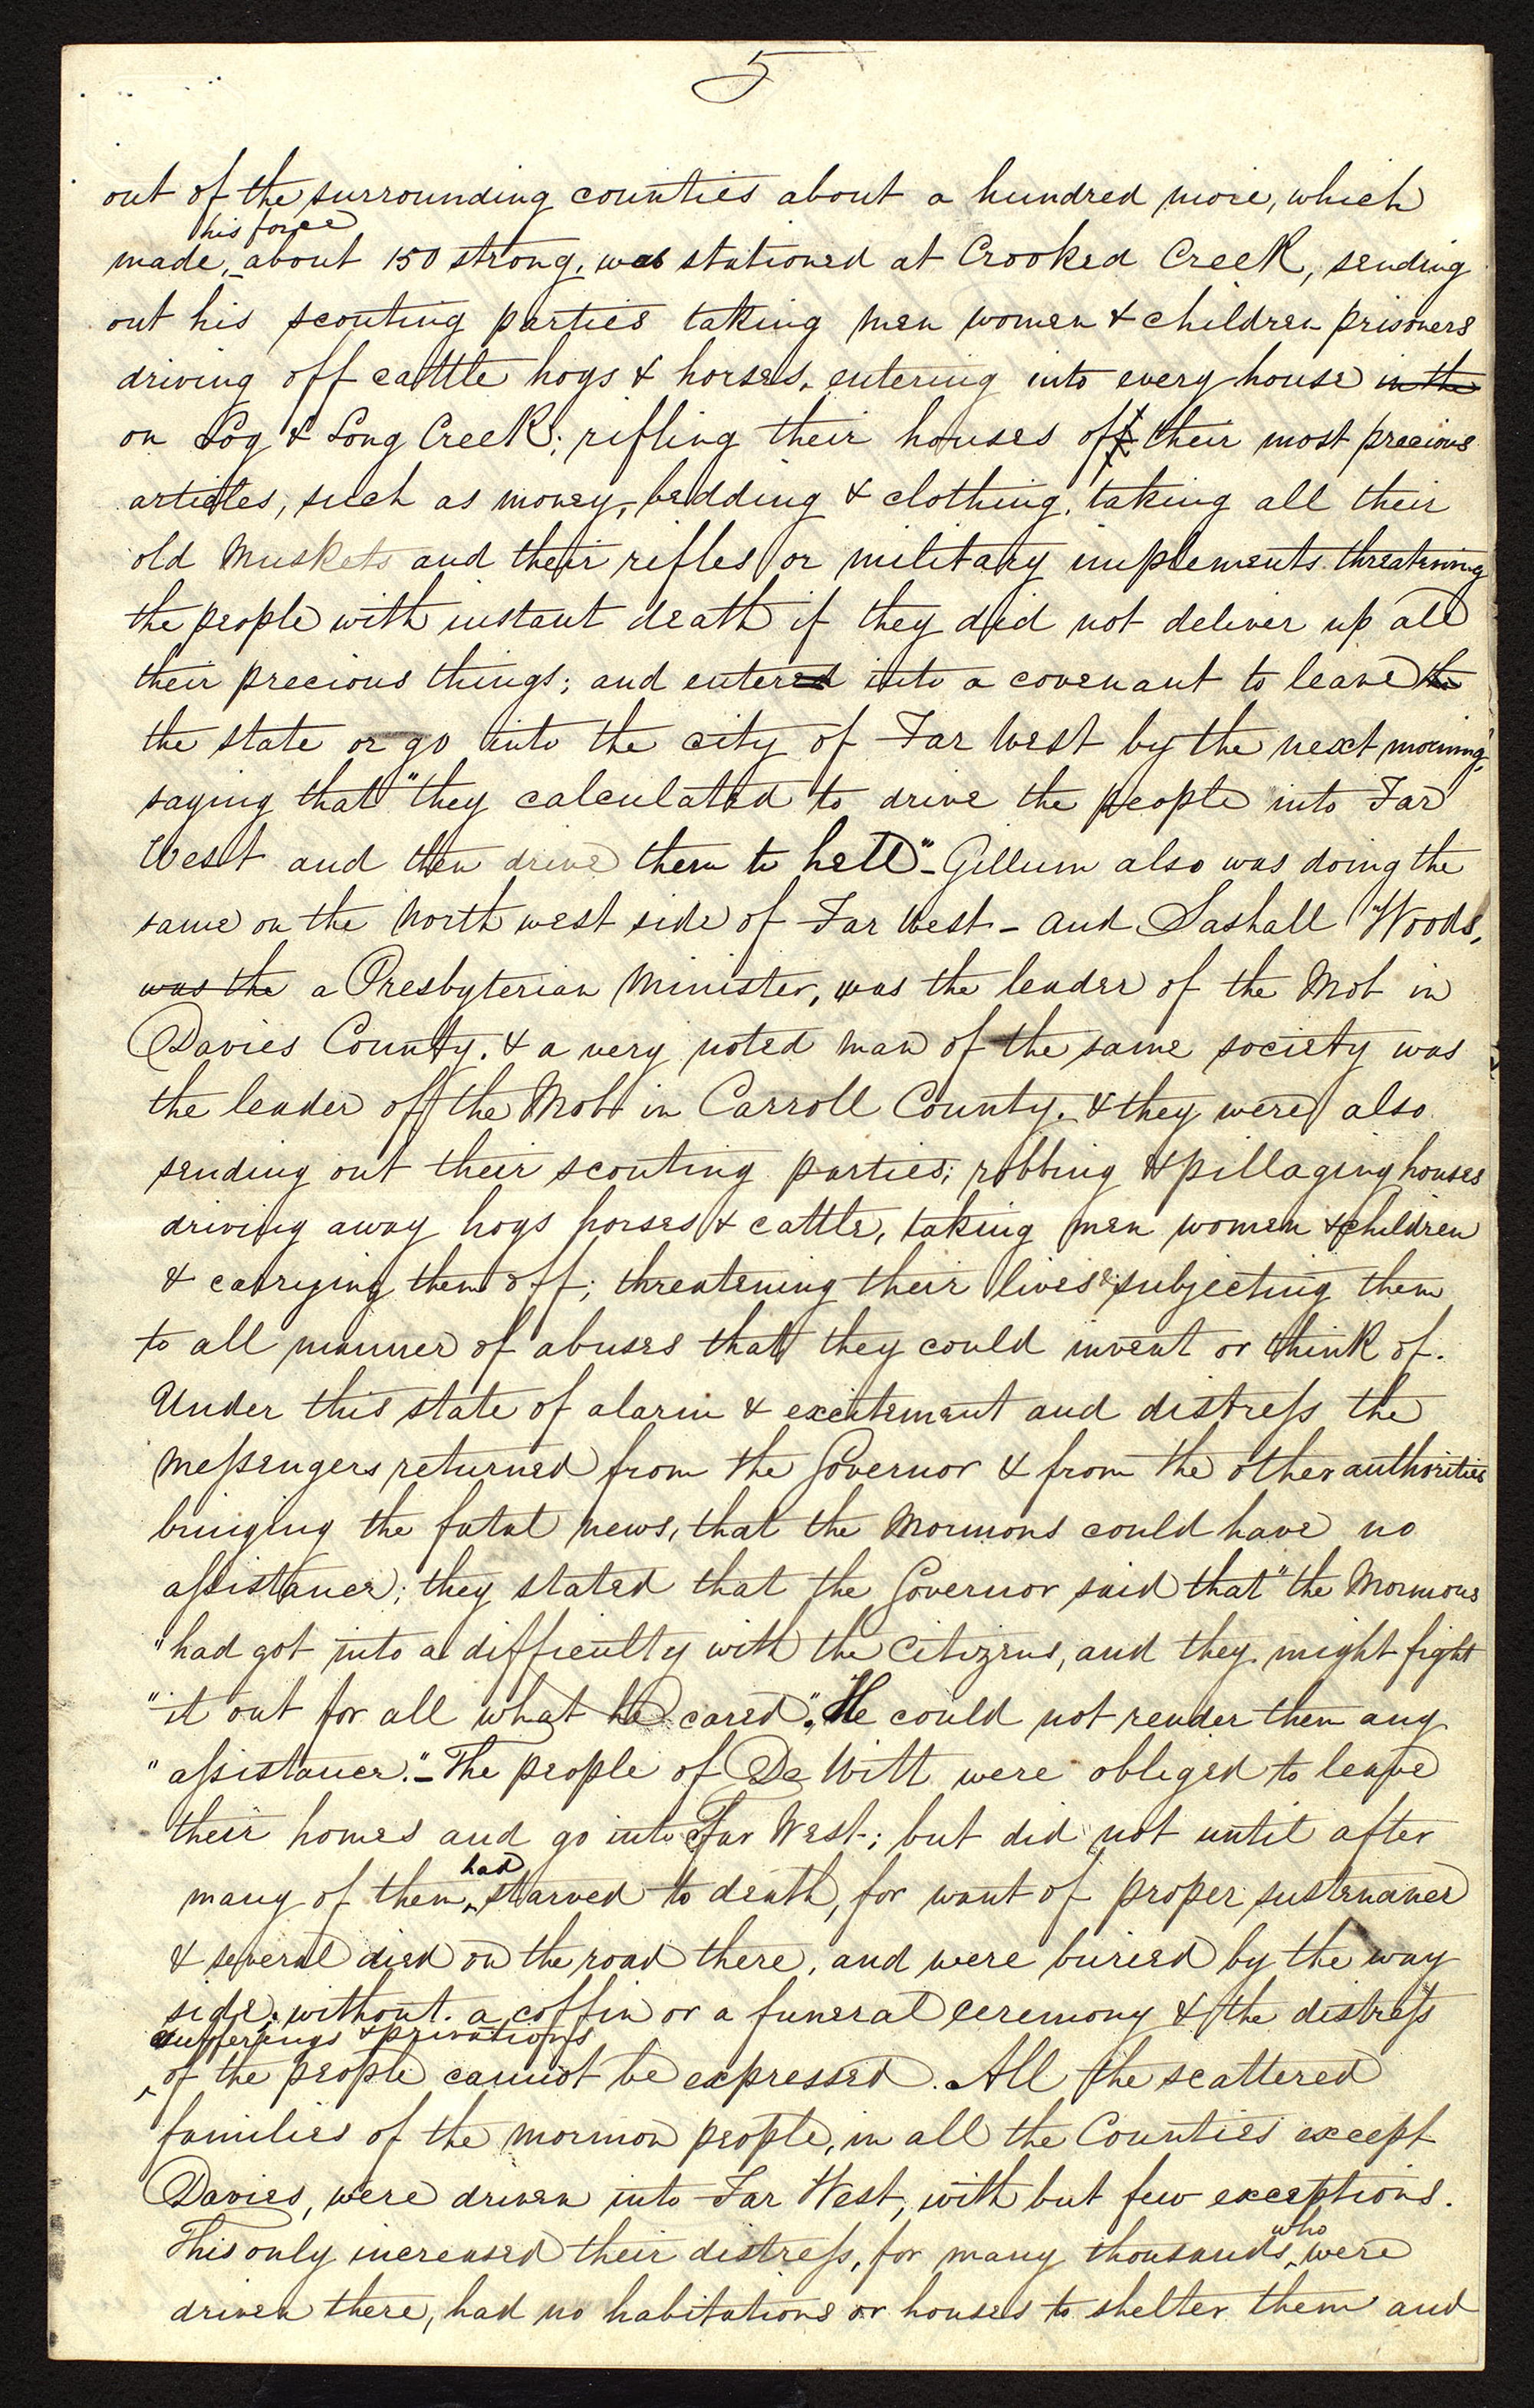 5
out of the surrounding counties about a hundred more, which
his force
made, about 150 strong, was stationed at Crooked Creek, sending
out his scouting parties taking men women & children prisoners
driving off cattle hogs & horses, entering into every house in the
on Log & Long Creek; rifling their houses off their most precious
articles, such as money, bedding & clothing, taking all their
old Muskets and their rifles or military implements threatening
the people with instant death if they did not deliver up all
their precious things; and entered into a covenant to leave the
the state or go into the city of Far West by the next morning,
saying that "they calculated to drive the people into Far
West and then drive them to hell"- Gillum also was doing the
same on the North west side of Far West - and Sashall Woods,
was the a Presbyterian Minister, was the leader of the Mob in
Davies County. & a very noted man of the same society was
the leader of the Mob in Carroll County. & they were also
sending out their scouting parties; robbing & pillaging houses
driving away hogs horses & cattle, taking men women & children
& carrying them off; threatening their lives & subjecting them
to all manner of abuses that they could invent or think of.
Under this state of alarm & excitement and distress the
Messengers returned from the Governor & from the other authorities
bringing the fatal news, that the Mormons could have no
assistance; they stated that the Governor said that "the Mormons
"had got into a difficulty with the Citizens, and they might fight
"it out for all what he cared", He could not render them any
"assistance."- The people of De Witt were obliged to leave
their homes and go into Far West; but did not until after
had
many of them starved to death, for want of proper sustenance
& several died on the road there, and were buried by the way
side, without a coffin or a funeral ceremony & the distress
sufferings & privations
of the people cannot be expressed. All the scattered
families of the mormon people, in all the Counties except
Davies, were driven into Far West, with but few exceptions.
who
This only increased their distress, for many thousands were
driven there, had no habitations or houses to shelter them and